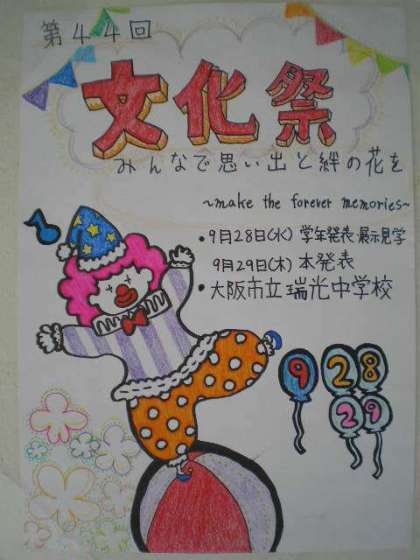 第44回
文化祭
みんなで思い出と絆の花を
~make the forever memories~
・9月28日(水) 学年発表・展示見学
9月29日(木) 本発表
・大阪市立瑞光中学校
9 28
29